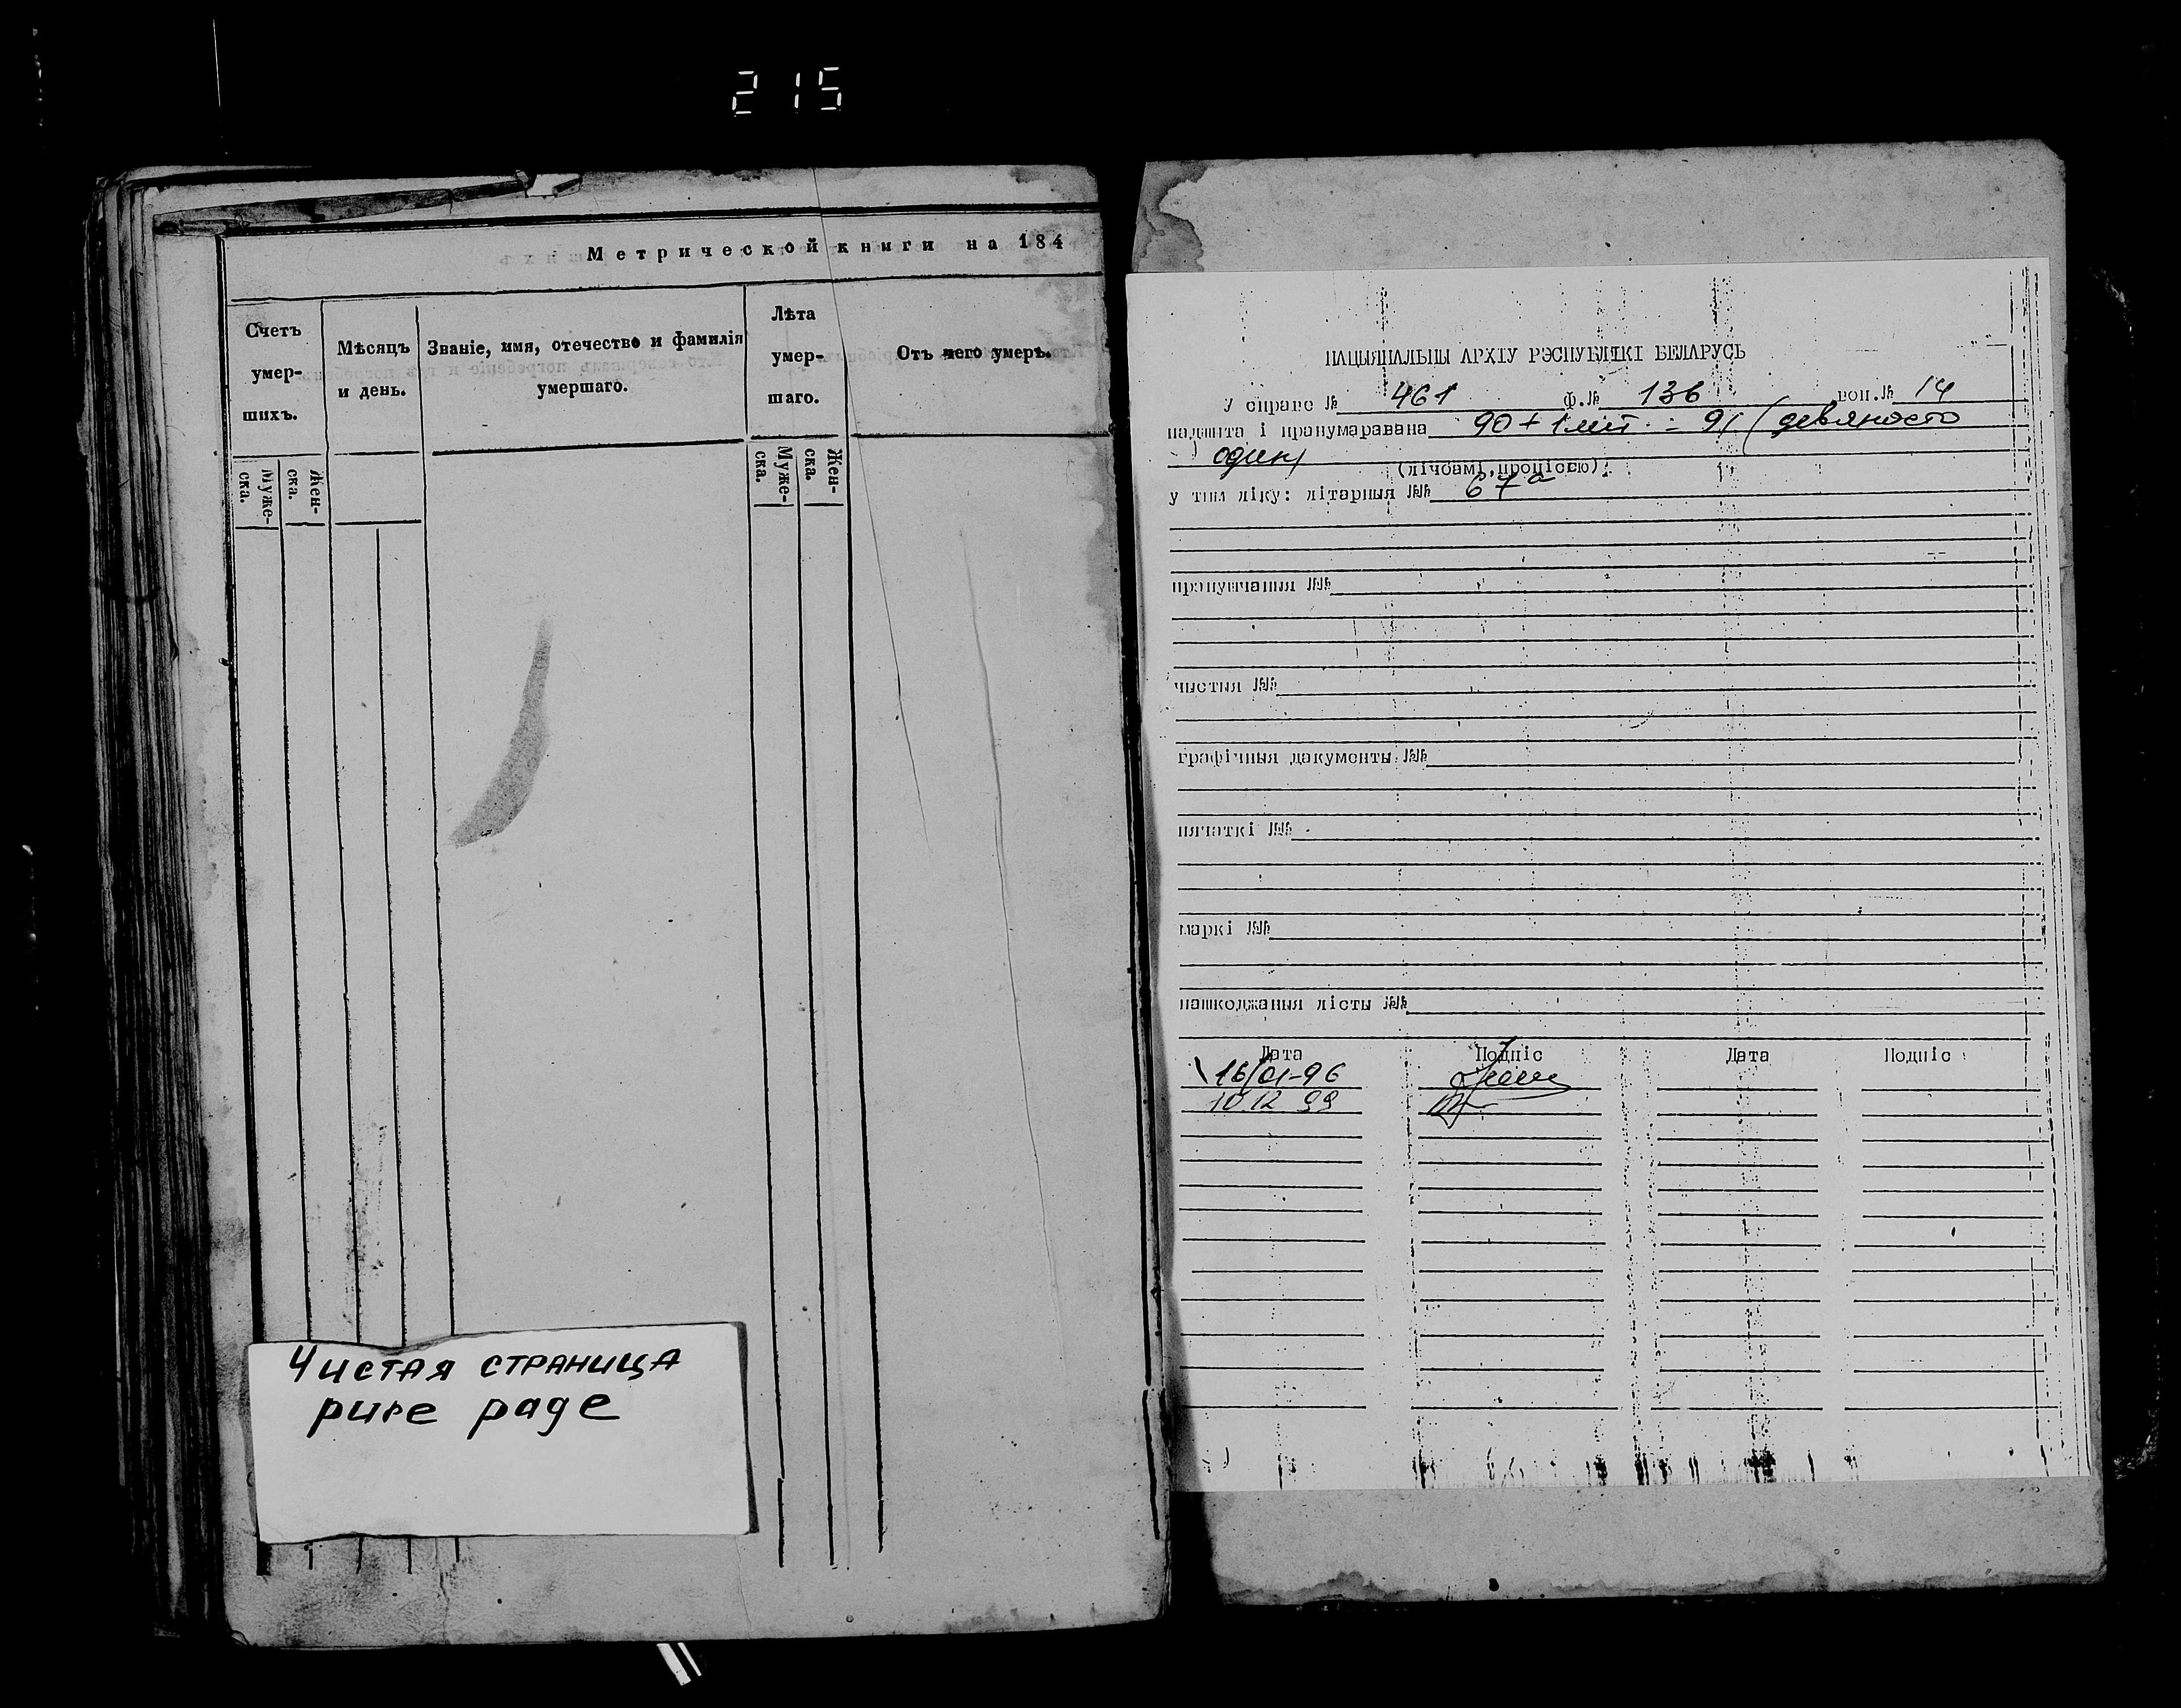 215
Метрической книги на 184
Счетъ умер-шихъ.
Мѣсяцъ и день.
Званіе, имя, отечество и фамилія умершаго.
Лѣта умер-шаго.
Отъ чего умеръ.
Муже-ска.
Жен-ска.
Муже-ска.
Жен-ска.
Чистая страница
pure page
НАЦЫЯНАЛЬНЫ АРХІУ РЭСПУБЛІКІ БЕЛАРУСЬ
У справе № 461 ф.№ 136 воп.№ 14
падшыта і пранумаравана 90 + 1 лит = 91 (девяносто
один)
(лічбамі, пропіссю)
у тым ліку: літарныя №№ 67а
прапушчаныя №№
чыстыя №№
графічныя дакументы №№
пячаткі №№
маркі №№
пашкоджаныя лісты №№
Дата Подпіс Дата Подпіс
16/01-96
10 12 99